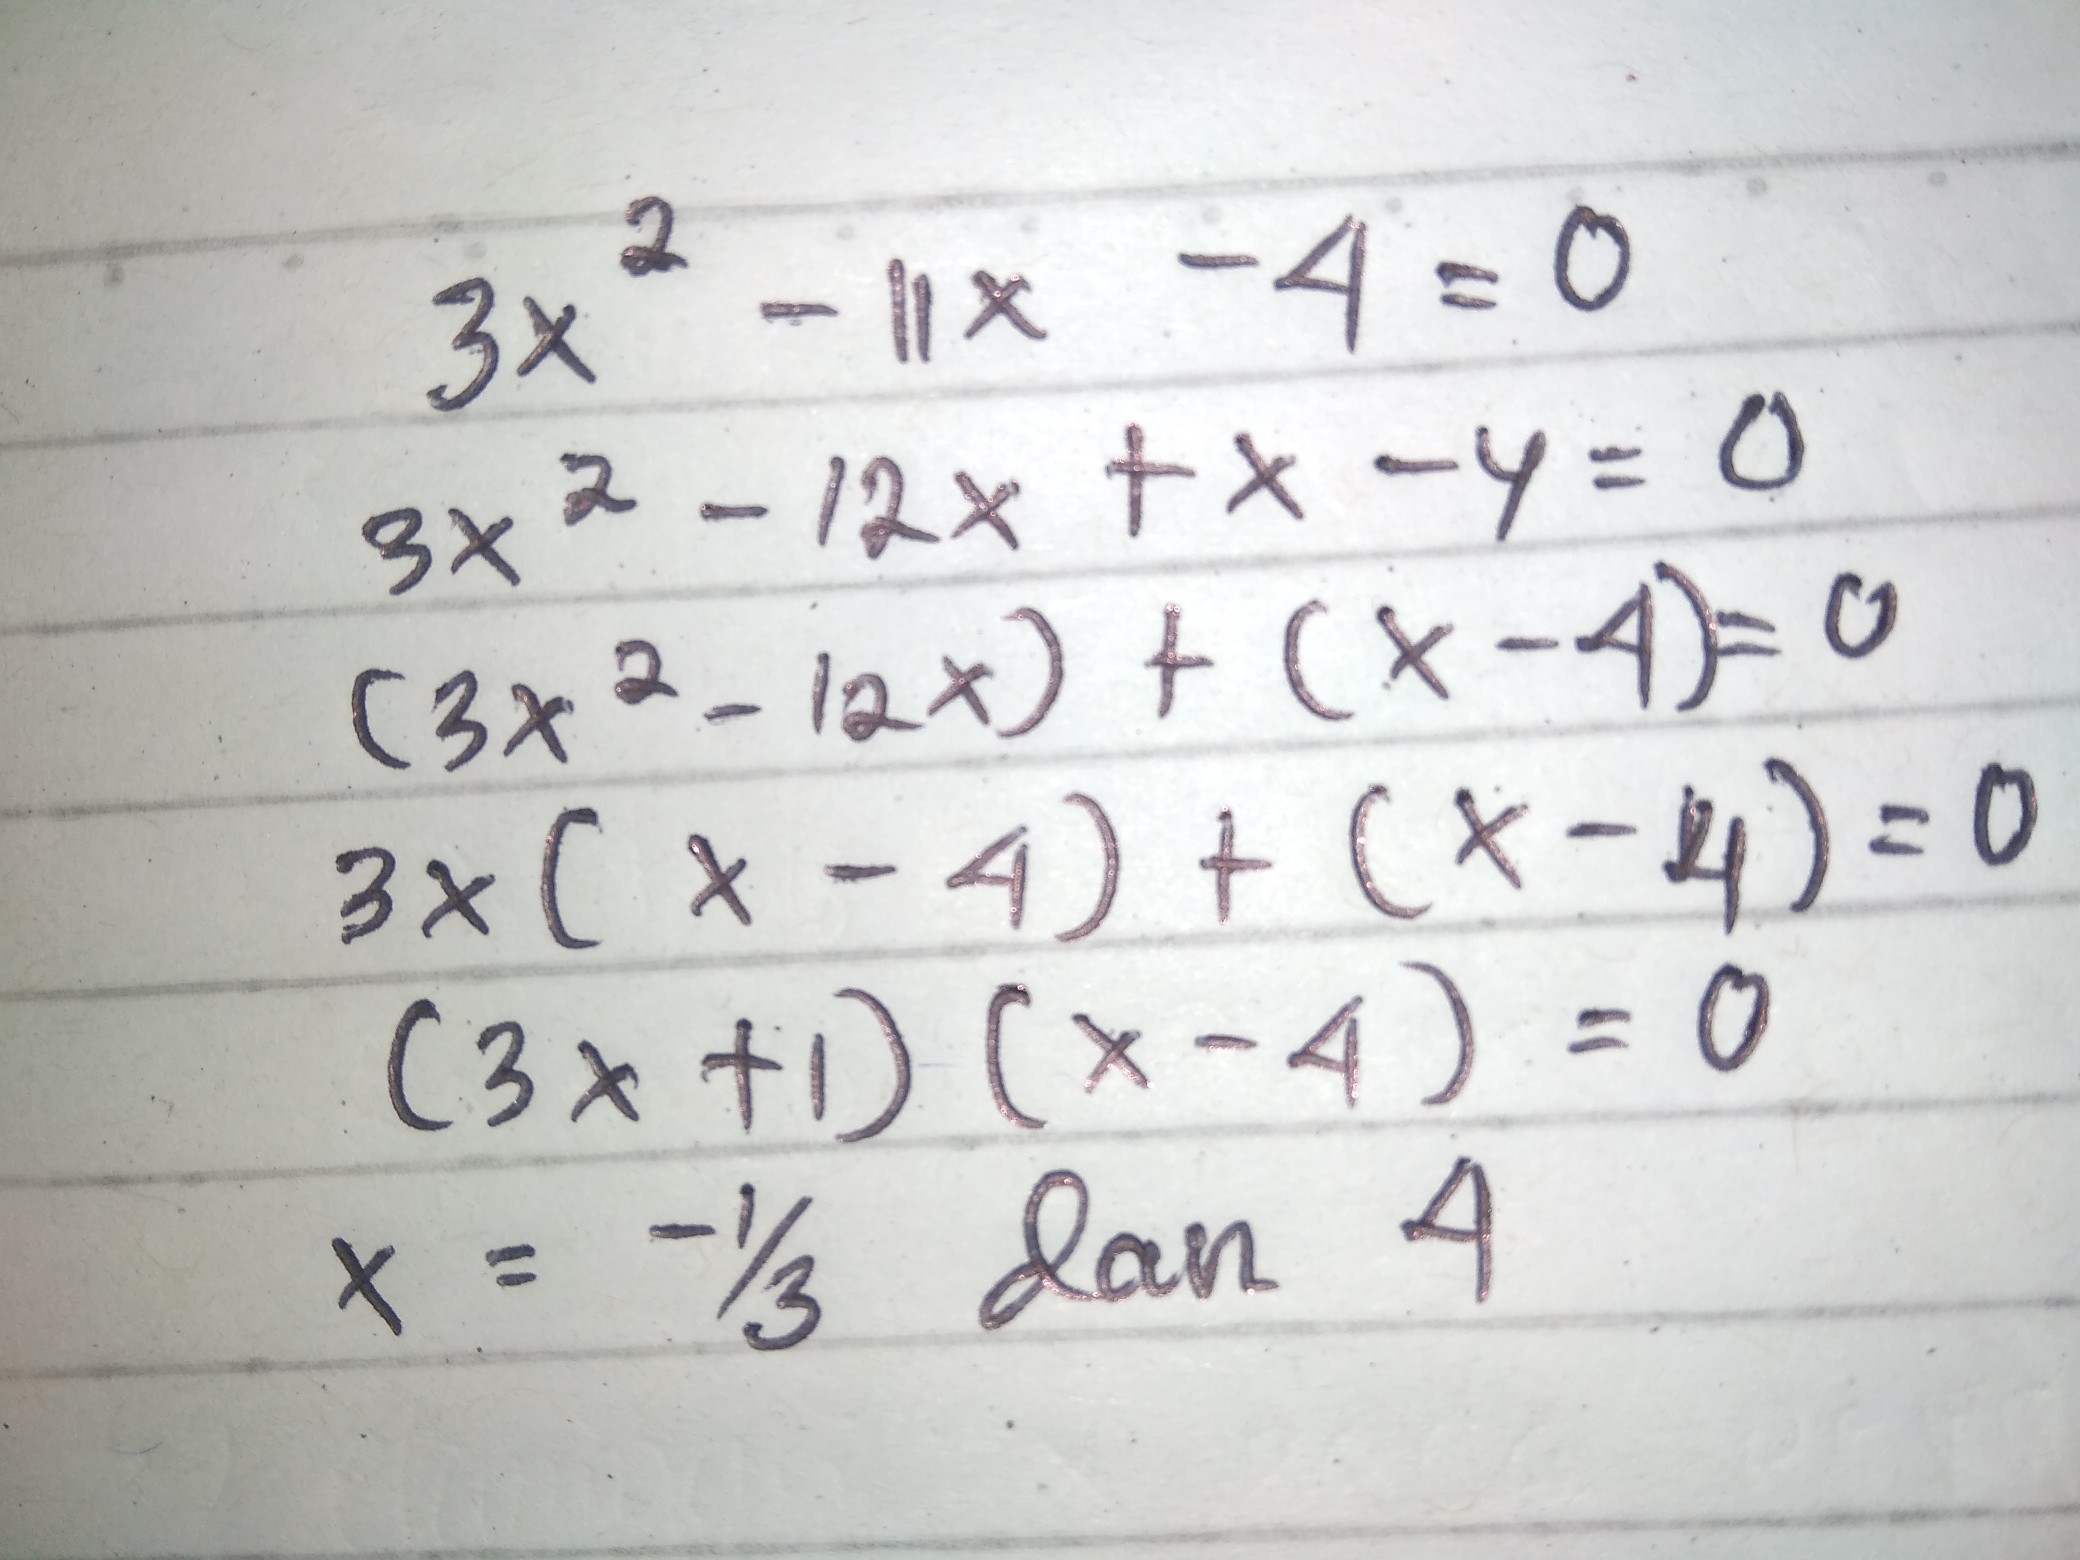 3x² - 11x - 4 = 0
3x² - 12x + x - 4 = 0
(3x² - 12x) + (x - 4) = 0
3x ( x - 4 ) + ( x - 4 ) = 0
(3x + 1) (x - 4) = 0
x = -1/3 dan 4